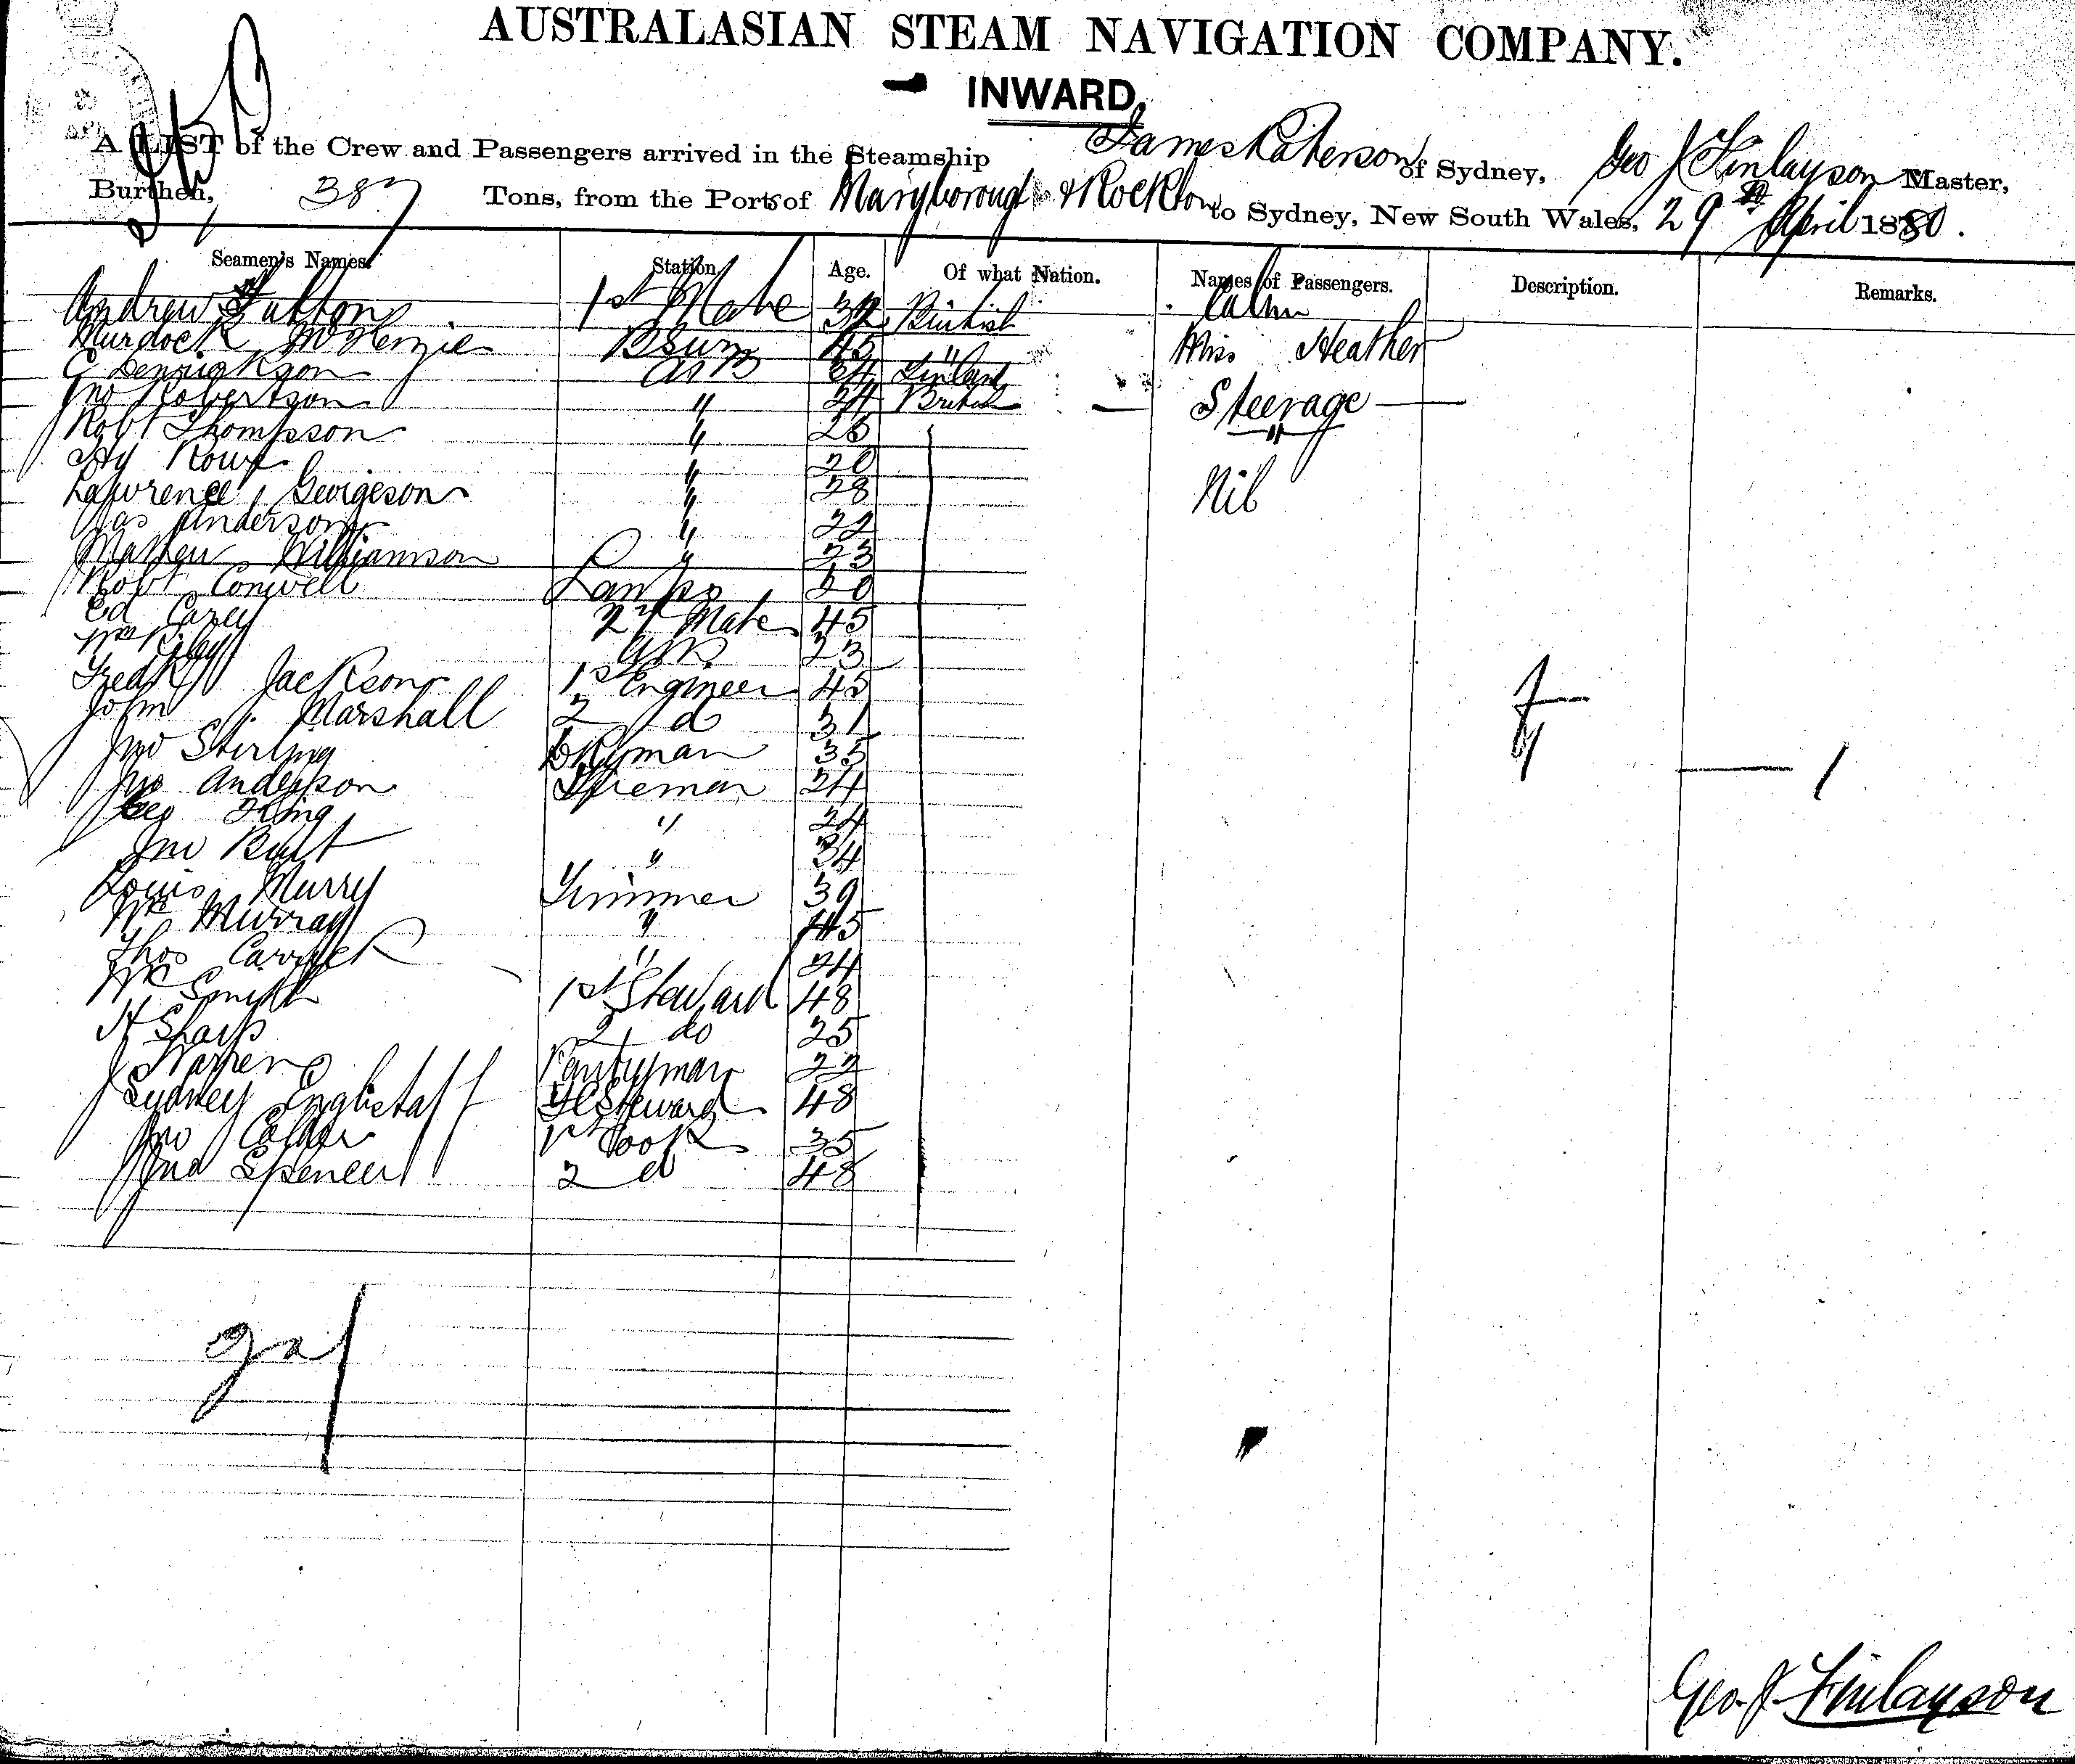 AUSTRALASIAN STEAM NAVIGATION COMPANY.
INWARD,
A LIST of the Crew and Passengers arrived in the Steamship James Paterson of Sydney, Geo J Finlayson Master,
Burthen, 387 Tons, from the Ports of Maryborough & Rockton to Sydney, New South Wales, 29th April 1880.
Seamen's Names. Station Age. Of what Nation. Names of Passengers. Description. Remarks.
Andrew Fulton 1st Mate 32 British Cabin
Murdock McKenzie 45 " Miss Heather
C AB 24 Finland
Jno Robertson " 24 British Steerage
Robt Thompson " 26
Hy " 20 Nil
Lawrence Georgeson " 28
Jas Anderson " 22
Williamson " 23
Robt Conwell Lamps
Ed Carey 2d Mate 45
Wm Riley AB. 23
Fredk Jackson 1st Engineer 45
John Marshall 2 d 31
Jno Stirling Dkyman 35
Jno Anderson Fireman 24
Geo King " 24
Jno " 34
Louis Murry Trimmer 39
Wm Murray " 45
Thos Carrick " 24
Wm Smith 1st Steward 48
H Sharp 2 do 25
J Warren Pantryman 22
Sydney Steward 48
Jno 1st Cook 35
Jno Spencer 2 d 48
1
Geo. J. Finlayson